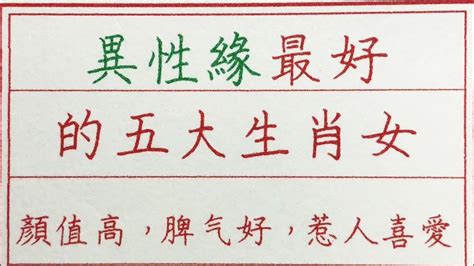 異性緣最好
的五大生肖女
顏值高，脾气好，惹人喜愛